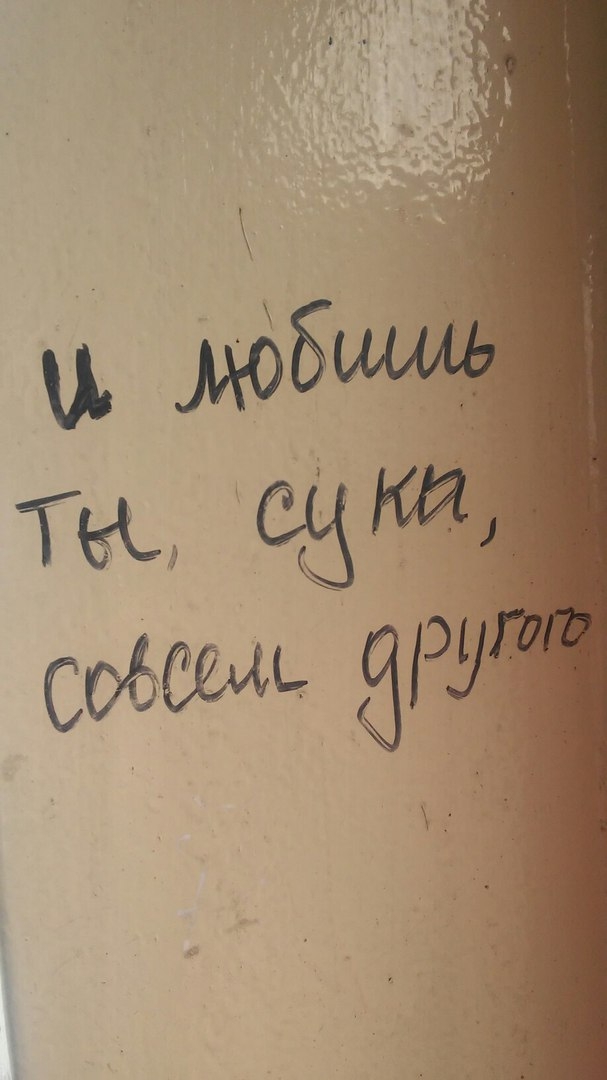 и любишь
ты, сука,
совсем другого